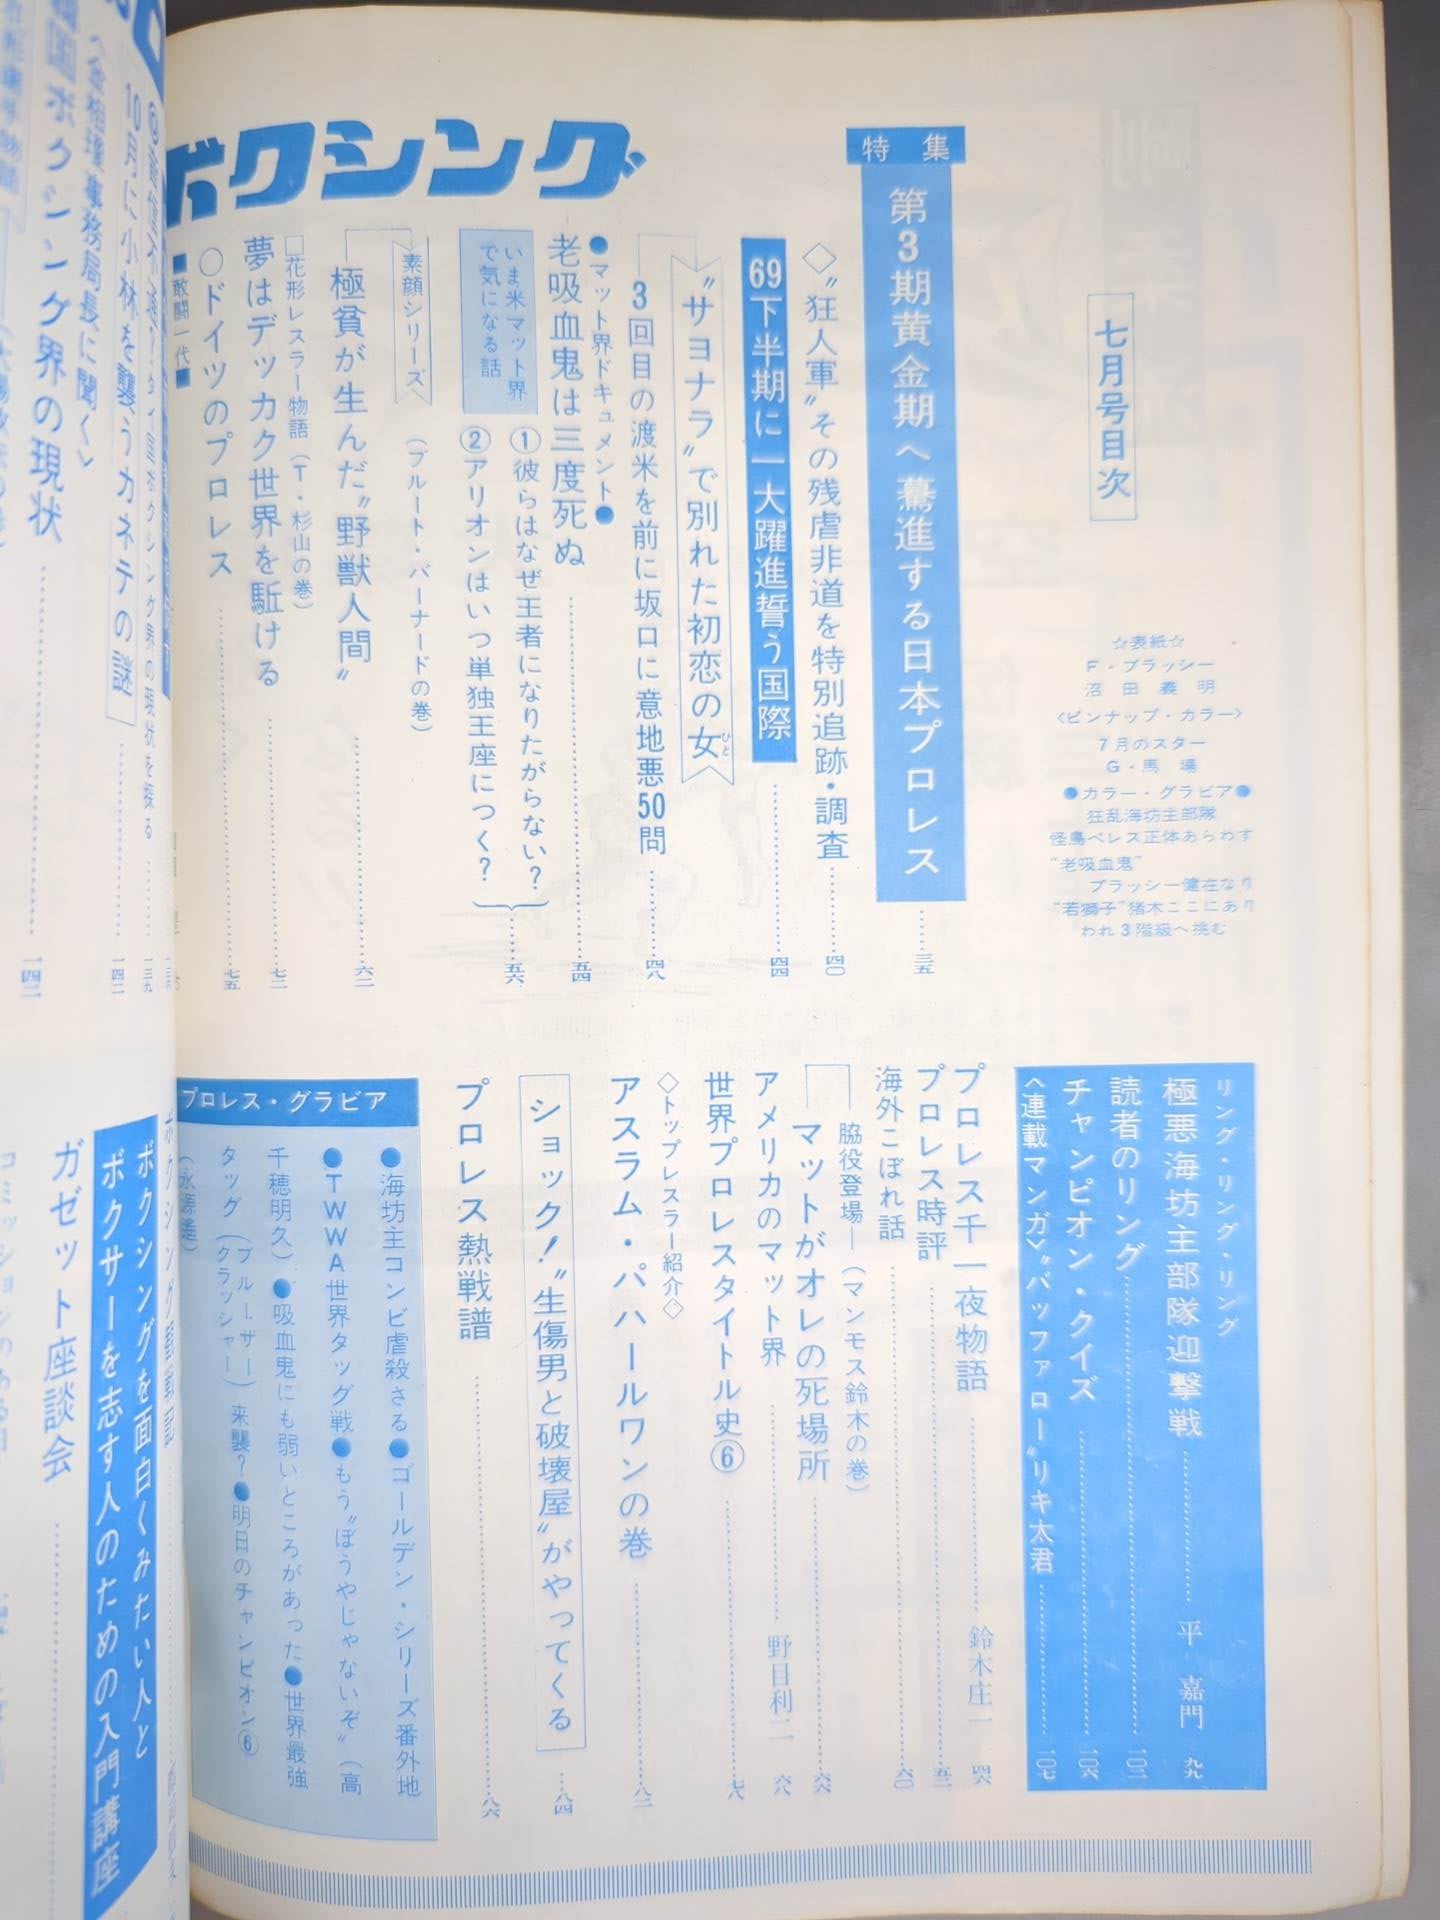 七月号目次
☆表紙☆
F・ブラッシー
沼田義明
〈ピンナップ・カラー〉
7月のスター
G・馬場
●カラー・グラビア●
狂乱海坊主部隊
怪鳥ペレス正体あらわす
“老吸血鬼”
ブラッシー健在なり
“若獅子”猪木ここにあり
われ3階級へ挑む
特集
第3期黄金期へ驀進する日本プロレス……三五
◇“狂人軍”その残虐非道を特別追跡・調査……四〇
69下半期に一大躍進誓う国際……四四
“サヨナラ”で別れた初恋の女
ひと
3回目の渡米を前に坂口に意地悪50問……四八
●マット界ドキュメント●
老吸血鬼は三度死ぬ……五四
いま米マット界
で気になる話
①彼らはなぜ王者になりたがらない?
②アリオンはいつ単独王座につく?……五六
素顔シリーズ
(ブルート・バーナードの巻)
極貧が生んだ“野獣人間”……六二
□花形レスラー物語(T・杉山の巻)
夢はデッカク世界を駈ける……七二
○ドイツのプロレス……七五
■敢闘一代■
ボクシング
リング・リング・リング
極悪海坊主部隊迎撃戦……平 嘉門 九九
読者のリング……一〇二
チャンピオン・クイズ……一〇六
〈連載マンガ〉“バッファロー”リキ太君……一〇七
プロレス千一夜物語……鈴木庄一 四六
プロレス時評……五三
海外こぼれ話……六〇
脇役登場—(マンモス鈴木の巻)
マットがオレの死場所……六六
アメリカのマット界……野目利二 六八
世界プロレスタイトル史⑥……七八
◇トップレスラー紹介◇
アスラム・パハールワンの巻……八二
ショック!“生傷男と破壊屋”がやってくる……八四
プロレス熱戦譜……八六
プロレス・グラビア
●海坊主コンビ虐殺さる●ゴールデン・シリーズ番外地
●TWWA世界タッグ戦●もう“ぼうやじゃないぞ”(高
千穂明久)●吸血鬼にも弱いところがあった●世界最強
タッグ(ブルーザー クラッシャー)来襲?●明日のチャンピオン⑥
(永源遙)
10月に小林を襲うカネテの謎……一四二
事務局長に聞く〉
韓国ボクシング界の現状……一四二
ボクシングを面白くみたい人と
ボクサーを志す人のための入門講座
ガゼット座談会